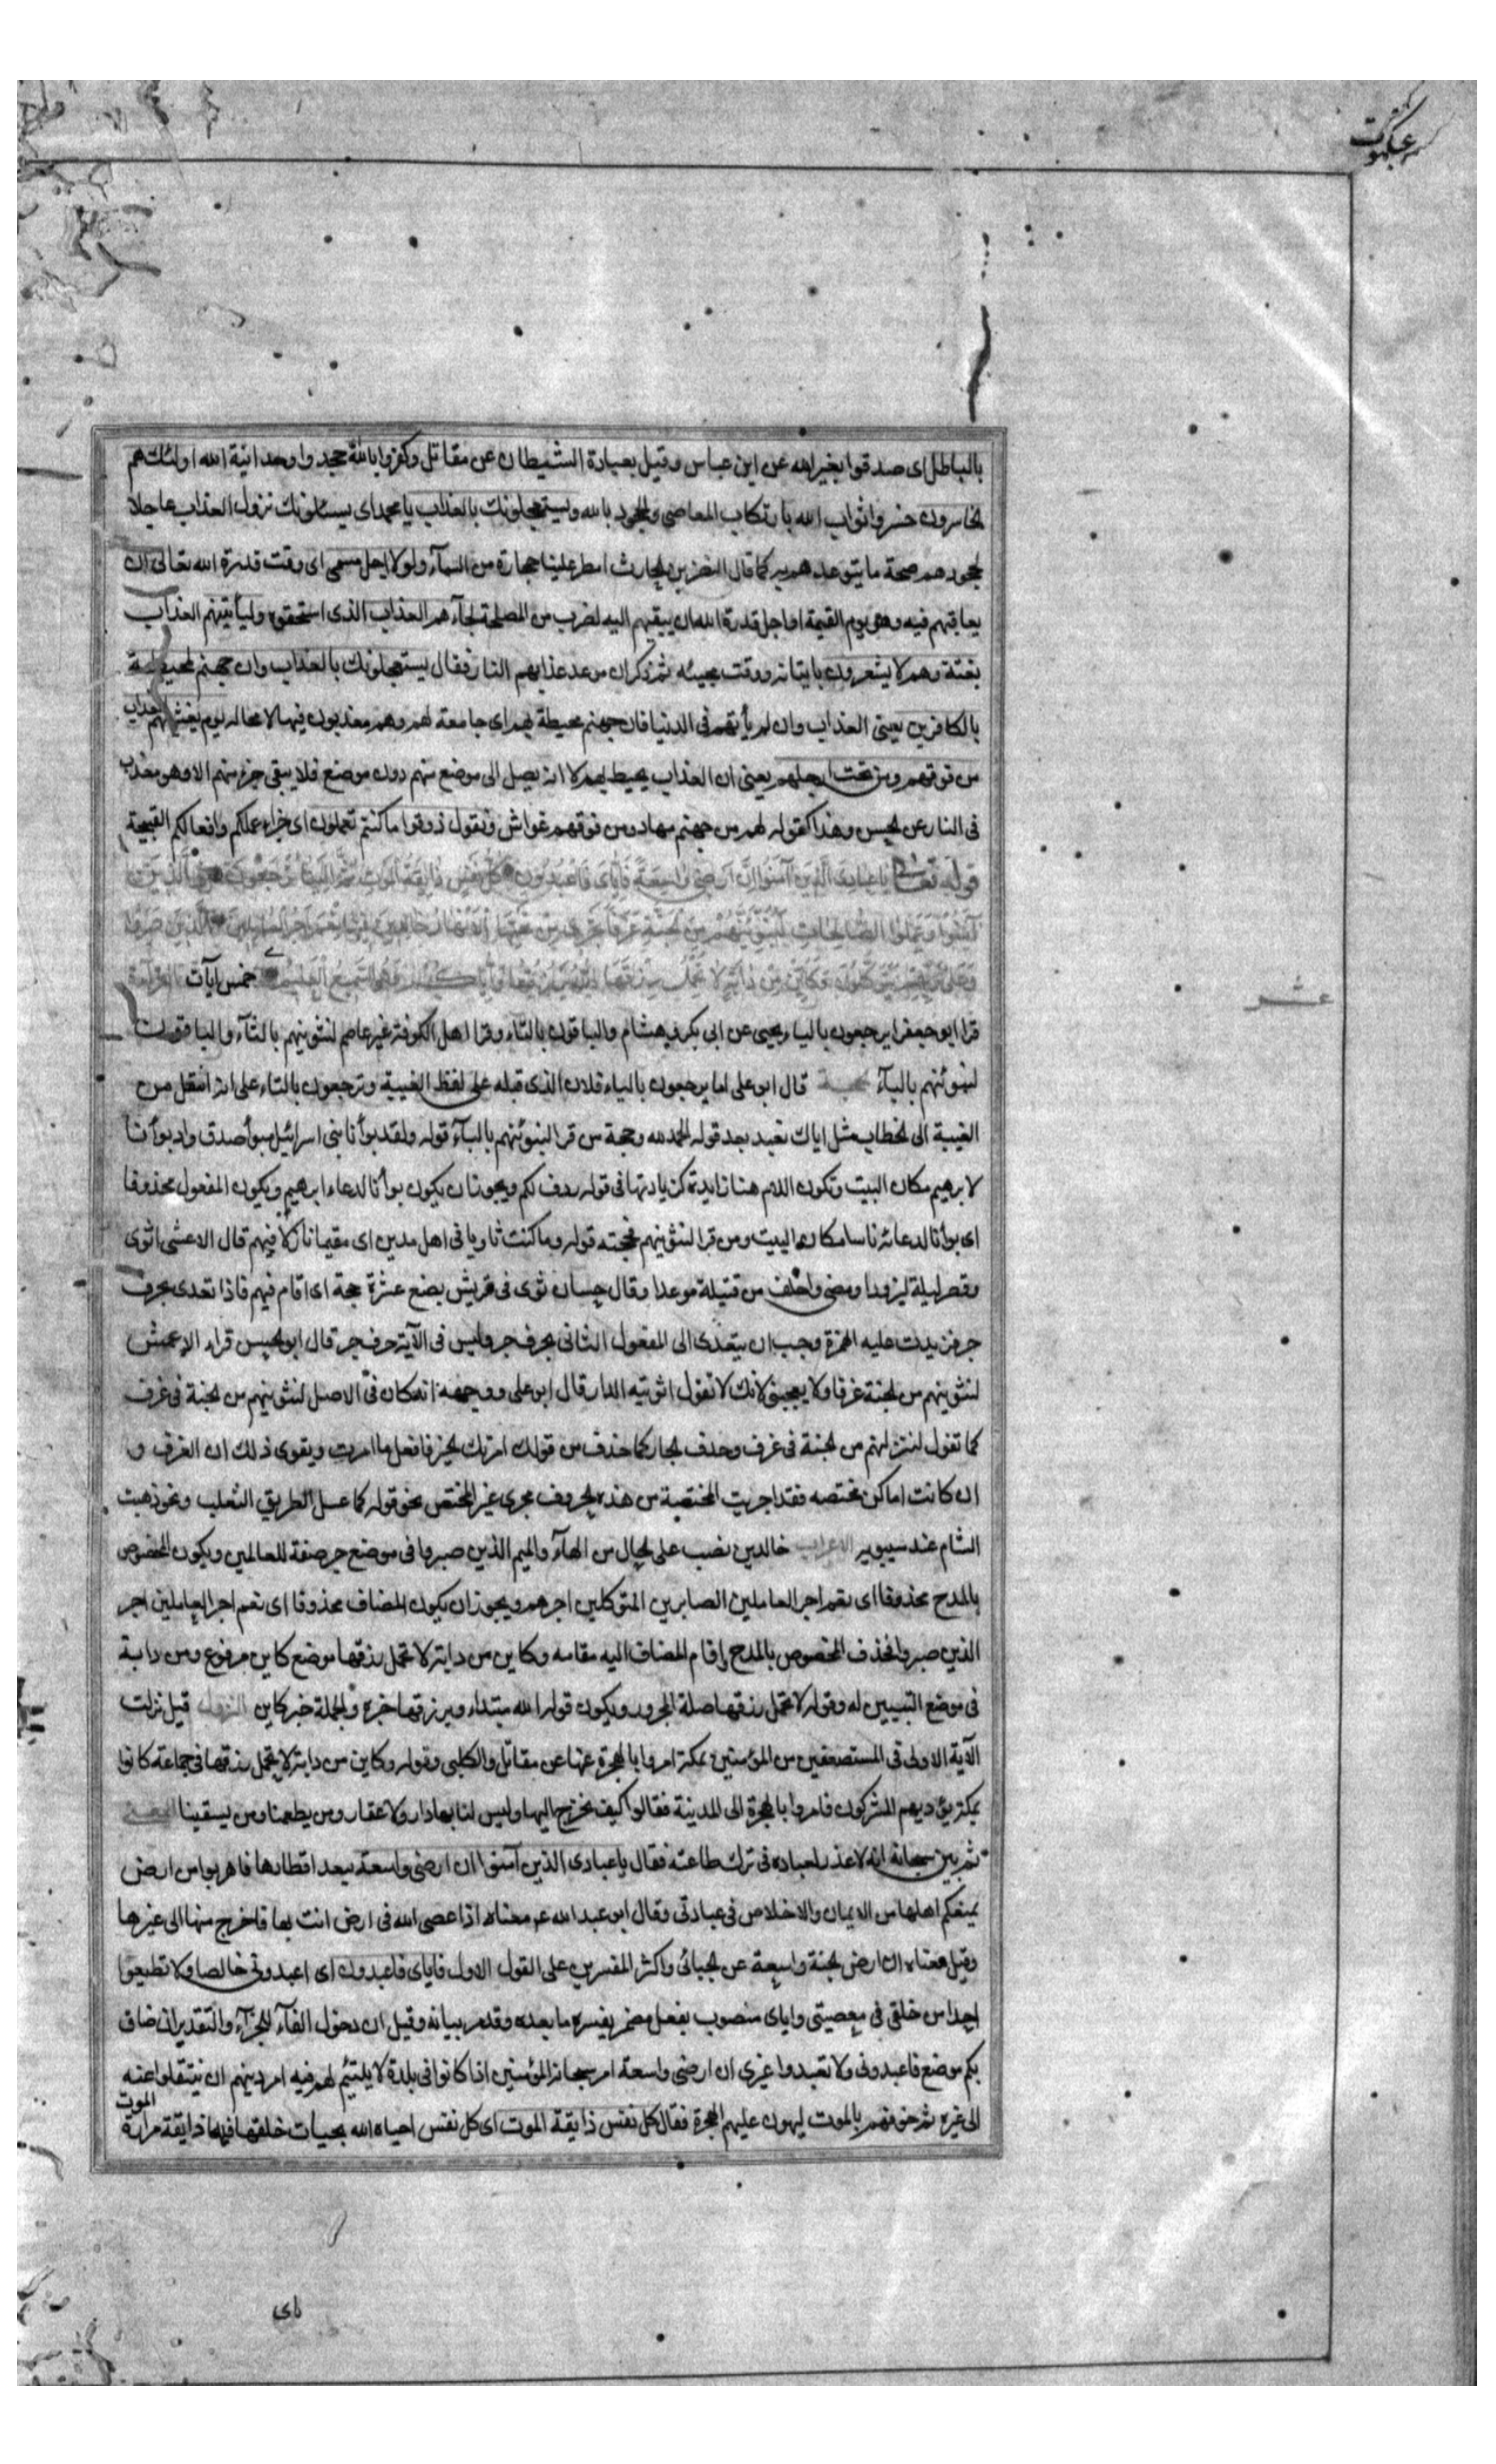 عنكبوت
بالباطل اى صدقوا بغير الله عن ابن عباس وقيل بعبادة الشيطان عن مقاتل وكفروا بالله جحدوا وحدانية الله اولئك هم
الخاسرون خسروا ثواب الله بارتكاب المعاصى والجحود بالله ويستعجلونك بالعذاب يا محمد اى يسئلونك نزول العذاب عاجلا
لجحودهم صحة ما يتوعدهم به كما قال النضر بن الحارث امطر علينا حجارة من السمآء ولولا اجل مسمى اى وقت قدره الله تعالى ان
يعاقبهم فيه وهو يوم القيمة او اجل قدره الله ان يبقيهم اليه لضرب من المصلحة لجآءهم العذاب الذى استحقوه وليأتينهم العذاب
بغتة وهم لا يشعرون باتيانه ووقت مجيئه ثم ذكر ان موعد عذابهم النار فقال يستعجلونك بالعذاب وان جهنم لمحيطة
بالكافرين يعنى العذاب وان لم يأتهم فى الدنيا فان جهنم محيطة بهم اى جامعة لهم وهم معذبون فيها لا محاله يوم يغشيهم العذاب
من فوقهم ومن تحت ارجلهم يعنى ان العذاب يحيط بهم لا انه يصل الى موضع منهم دون موضع فلا يبقى جزء منهم الا وهو معذب
فى النار عن الحسن وهذا كقوله لهم من جهنم مهاد ومن فوقهم غواش ونقول ذوقوا ما كنتم تعملون اى جزاء عملكم وافعالكم القبيحة
قوله تعالى يا عبادى الذين آمنوا ان ارضى واسعة فاياى فاعبدون كل نفس ذايقة الموت ثم الينا ترجعون والذين
آمنوا وعملوا الصالحات لنبوئنهم من الجنة غرفا تجرى من تحتها الانهار خالدين فيها نعم اجر العاملين الذين صبروا
وعلى ربهم يتوكلون وكاين من دابة لا تحمل رزقها الله يرزقها واياكم وهو السميع العليم خمس آيات القرآءة
عشر
قرا ابو جعفر يرجعون باليآء يحيى عن ابى بكر وهشام والباقون بالتاء وقرا اهل الكوفة غير عاصم لنثوينهم بالثآء والباقون
لنبوئنهم بالبآء الحجة قال ابو على اما يرجعون بالياء فلان الذى قبله على لفظ الغيبة وترجعون بالتاء على انه انتقل من
الغيبة الى الخطاب مثل اياك نعبد بعد قوله الحمد لله وحجة من قرا لنبوئنهم بالبآء قوله ولقد بوأنا بنى اسرائيل مبوأ صدق واذ بوأنا
لابرهيم مكان البيت وتكون اللام هنا زايدة كزيادتها فى قوله ردف لكم ويجوز ان يكون بوأنا لدعاء ابرهيم ويكون المفعول محذوفا
اى بوأنا لدعائه ناسا مكان البيت ومن قرا لنثوينهم فحجته قوله وما كنت ثاويا فى اهل مدين اى مقيما نازلا فيهم قال الاعشى اثوى
وقصر ليلة ليزودا ومضى واخلف من قتيلة موعدا وقال حسان ثوى فى قريش بضع عشرة حجة اى اقام فيهم فاذا تعدى بحرف
جر فزيدت عليه الهمزة وجب ان يتعدى الى المفعول الثانى بحرف جر وليس فى الآية حرف جر قال ابو الحسن قراء الاعمش
لنثوينهم من الجنة غرفا ولا يعجبنى لانك لا تقول اثويته الدار قال ابو على ووجهه انه كان فى الاصل لنثوينهم من الجنة فى غرف
كما تقول لننزلنهم من الجنة فى غرف وحذف الجار كما حذف من قولك امرتك الخير فافعل ما امرت ويقوى ذلك ان الغرف و
ان كانت اماكن مختصه فقد اجريت المختصة من هذه الحروف مجرى غير المختص نحو قوله كما عسل الطريق الثعلب ونحو ذهبت
الشام عند سيبويه الاعراب خالدين نصب على الحال من الهآء والميم الذين صبروا فى موضع جر صفة للعاملين ويكون المخصوص
بالمدح محذوفا اى نعم اجر العاملين الصابرين المتوكلين اجرهم ويجوز ان يكون المضاف محذوفا اى نعم اجر العاملين اجر
الذين صبروا فحذف المخصوص بالمدح واقام المضاف اليه مقامه وكاين من دابة لا تحمل رزقها موضع كاين مرفوع ومن دابة
فى موضع التبيين له وقوله لا تحمل رزقها صلة المجرور ويكون قوله الله مبتداء ويرزقها خبره والجملة خبر كاين النزول قيل نزلت
الآية الاولى فى المستضعفين من المؤمنين بمكة امروا بالهجرة عنها عن مقاتل والكلبى وقوله وكاين من دابة لا تحمل رزقها فى جماعة كانوا
بمكة يؤذيهم المشركون فامروا بالهجرة الى المدينة فقالوا كيف نخرج اليها وليس لنا بها دار ولا عقار ومن يطعمنا ومن يسقينا المعنى
ثم بين سبحانه انه لا عذر لعباده فى ترك طاعته فقال يا عبادى الذين آمنوا ان ارضى واسعة يبعد اقطارها فاهربوا من ارض
يمنعكم اهلها من الايمان والاخلاص فى عبادتى وقال ابو عبد الله ع معناه اذا عصى الله فى ارض انت بها فاخرج منها الى غيرها
وقيل معناه ان ارض الجنة واسعة عن الجبائى واكثر المفسرين على القول الاول فاياى فاعبدون اى اعبدونى خالصا ولا تطيعوا
احدا من خلقى فى معصيتى واياى منصوب بفعل مضمر يفسره ما بعده وقد مر بيانه وقيل ان دخول الفآء للجزآء والتقدير ان ضاق
بكم موضع فاعبدونى ولا تعبدوا غيرى ان ارضى واسعة امر سبحانه المؤمنين اذا كانوا فى بلدة لا يلتئم لهم فيه امر دينهم ان ينتقلوا عنه
الى غيره ثم خوفهم بالموت ليهون عليهم الهجرة فقال كل نفس ذايقة الموت اى كل نفس احياه الله بحيات خلقها فيها ذايقة مرارة الموت
باى